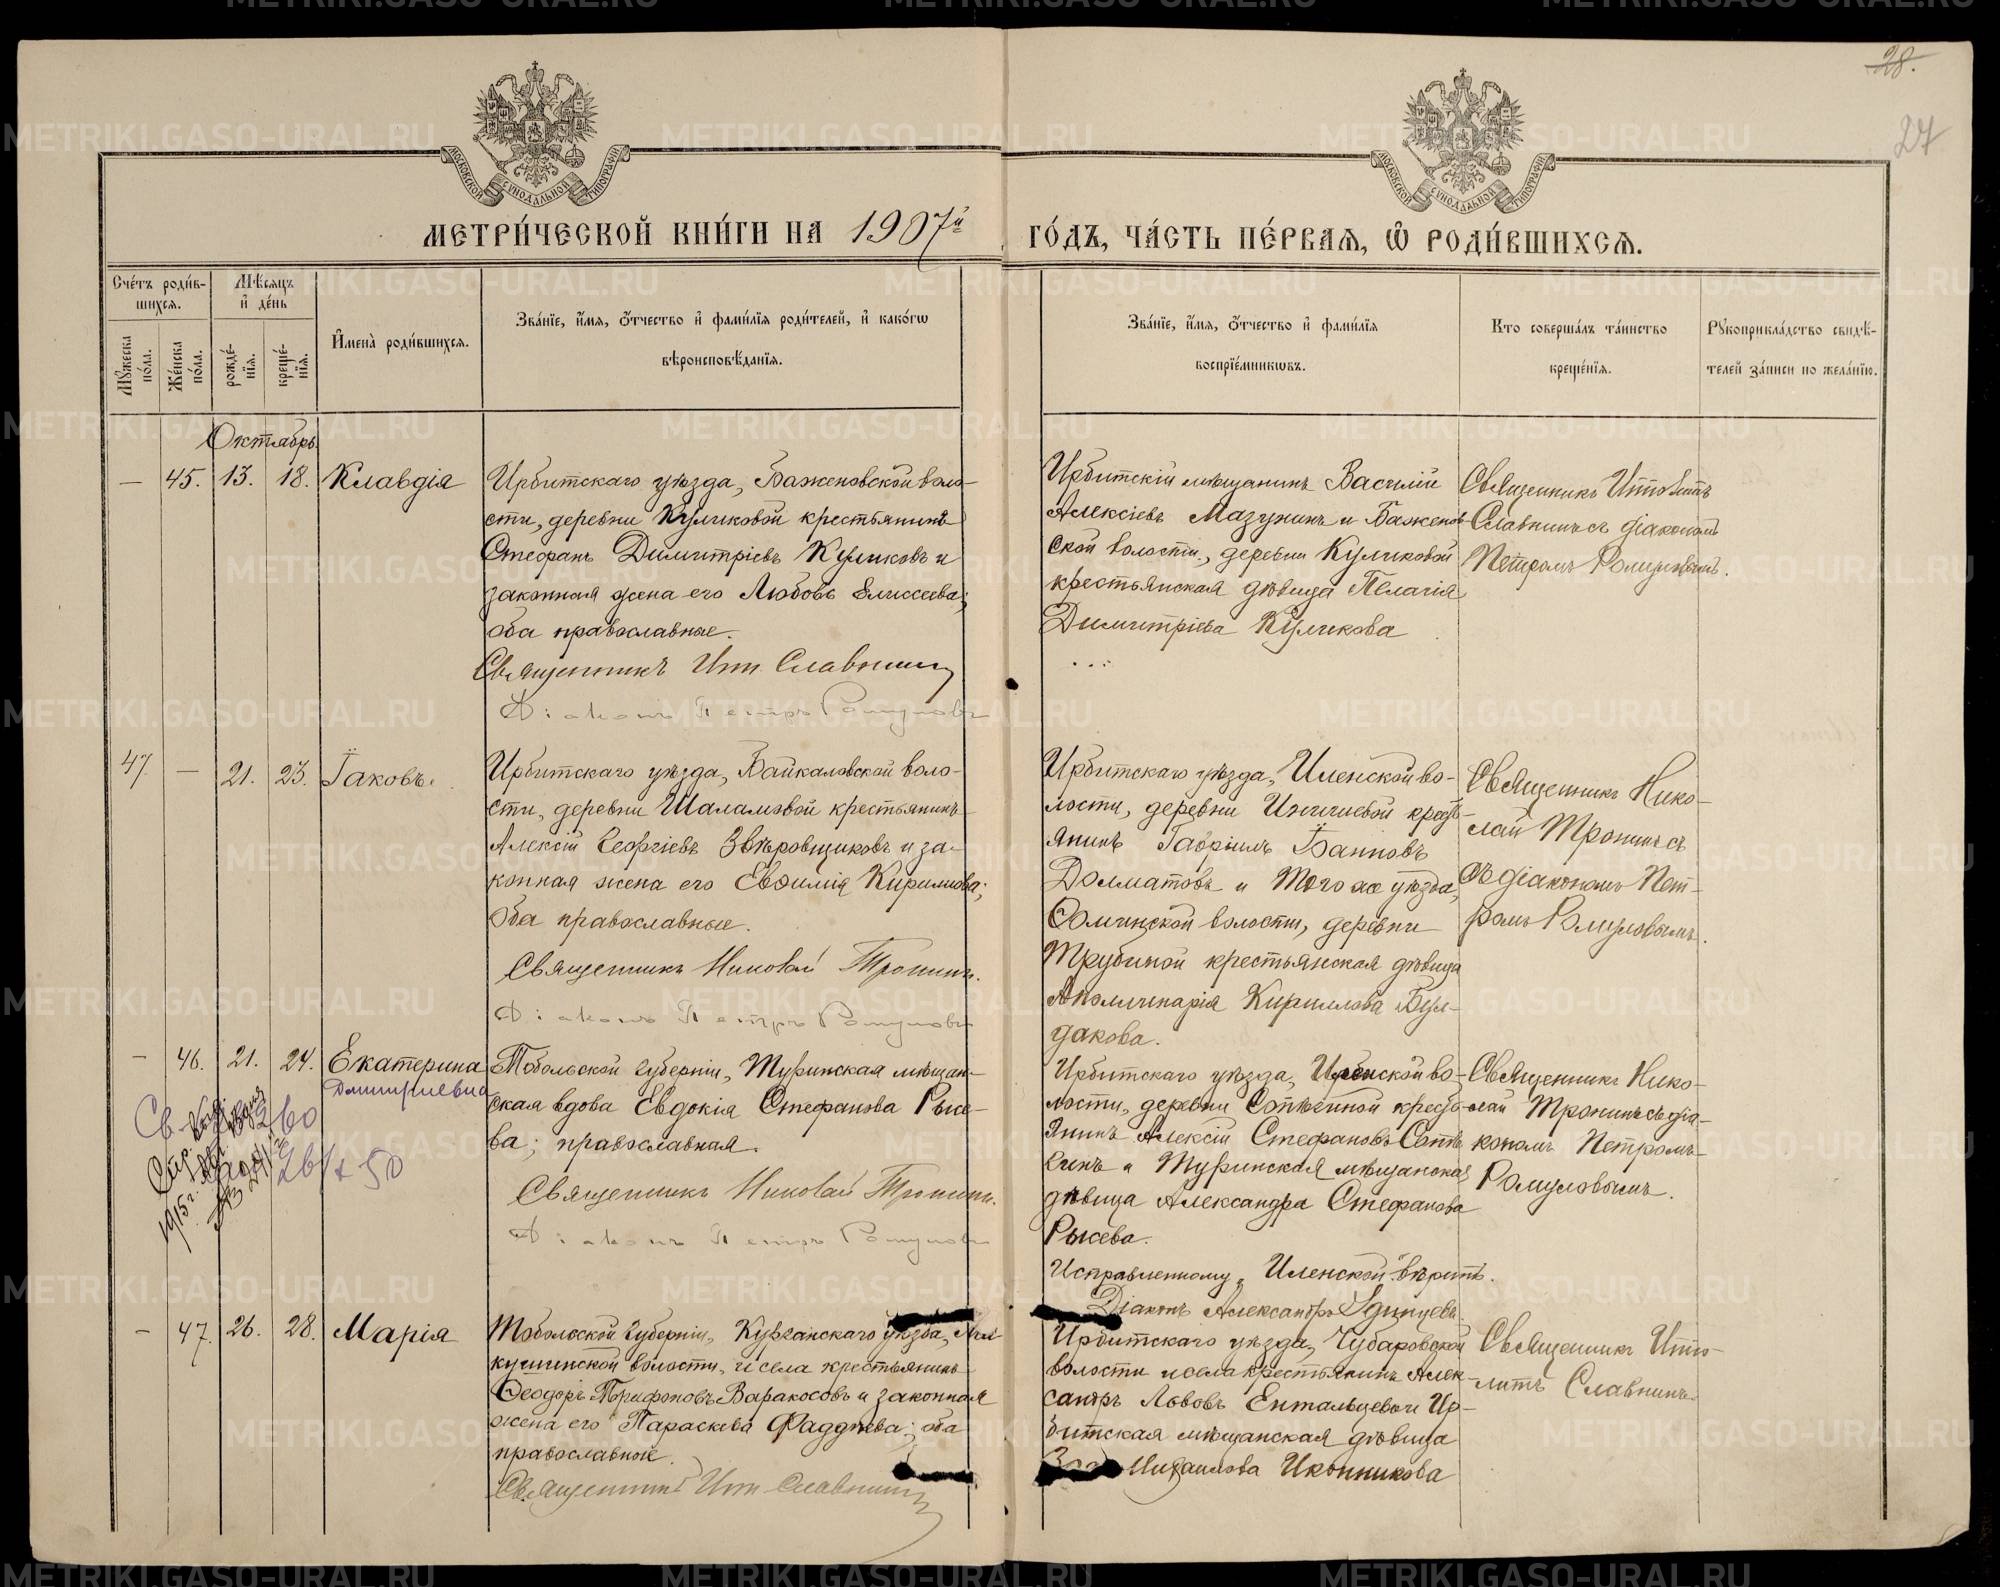 28.
27
МОСКОВСКОЙ СѴНОДАЛЬНОЙ ТИПОГРАФІИ
МОСКОВСКОЙ СѴНОДАЛЬНОЙ ТИПОГРАФІИ
МЕТРИ́ЧЕСКОЙ КНИ́ГИ НА 1907й
ГО́ДЪ, ЧА́СТЬ ПЕ́РВАЯ, Ѡ҆ РОДИ́ВШИХСЯ.
Счéтъ роди́в-
шихся.
Мѣ́сяцъ
и҆ дéнь
Мꙋжеска пóла.
Жéнска пóла.
рождé-
нїя.
крещé-
нїя.
И҆менà роди́вшихся.
Звáнїе, и҆́мя, ѻ҆́тчество и҆ фами́лїя роди́телей, и҆ какóгѡ
вѣроисповѣ́данїя.
Звáнїе, и҆́мя, ѻ҆́тчество и҆ фами́лїя
воспрїéмникѡвъ.
Кто совершáлъ тáинство
крещéнїя.
Рꙋкоприклáдство свидѣ́-
телей зáписи по желáнїю.
Октябрь
— 45. 13. 18. Клавдія
Ирбитскаго уѣзда, Баженовской воло-
сти, деревни Куликовой крестьянинъ
Стефанъ Димитріевъ Куликовъ и
законная жена его Любовь Елисеева;
оба православные.
Священникъ Ипп. Славнинъ
Діаконъ Петръ Ромуловъ
Ирбитскій мѣщанинъ Василій
Алексіевъ Мазунинъ и Баженов-
ской волости, деревни Куликовой
крестьянская дѣвица Пелагія
Димитріева Куликова
Священникъ Ипполитъ
Славнинъ съ діакономъ
Петромъ Ромуловымъ.
47. — 21. 23. Іаковъ.
Ирбитскаго уѣзда, Байкаловской воло-
сти, деревни Шаламовой крестьянинъ
Алексій Георгіевъ Звѣровщиковъ и за-
конная жена его Евѳимія Кириллова;
оба православные.
Священникъ Николай Тронинъ.
Діаконъ Петръ Ромуловъ
Ирбитскаго уѣзда, Иленской во-
лости, деревни крестъ-
янинъ Гавріилъ
Долматовъ и того же уѣзда,
волости, деревни
Трубиной крестьянская дѣвица
Аполлинарія Кириллова Бул-
дакова.
Священникъ Нико-
лай Тронинъ съ
съ діакономъ Пет-
ромъ Ромуловымъ.
— 46. 21. 24. Екатерина
Дмитриевна
Тобольской губерніи, Туринская мѣщан-
ская вдова Евдокія Стефанова Рысе-
ва; православная.
Священникъ Николай Тронинъ.
Діаконъ Петръ Ромуловъ
Ирбитскаго уѣзда, Иленской во-
лости, деревни крестъ-
янинъ Алексій Стефановъ
и Туринская мѣщанская
дѣвица Александра Стефанова
Рысева.
Исправленному „Иленской“ вѣрить.
Діаконъ Александръ
Священникъ Нико-
лай Тронинъ съ діа-
кономъ Петромъ
Ромуловымъ.
1915 г.
— 47. 26. 28. Марія
Тобольской губерніи, Курганскаго уѣзда,
волости, и села крестьянинъ
Ѳеодоръ Трифоновъ Варакосовъ и законная
жена его Параскева Фаддѣева; оба
православные.
Священникъ Ипп. Славнинъ
Ирбитскаго уѣзда, Чубаровской
волости и села крестьянинъ Алек-
сандръ Львовъ Ентальцевъ и Ир-
битская мѣщанская дѣвица
Михаилова Иконникова
Священникъ Иппо-
литъ Славнинъ.
METRIKI.GASO-URAL.RU